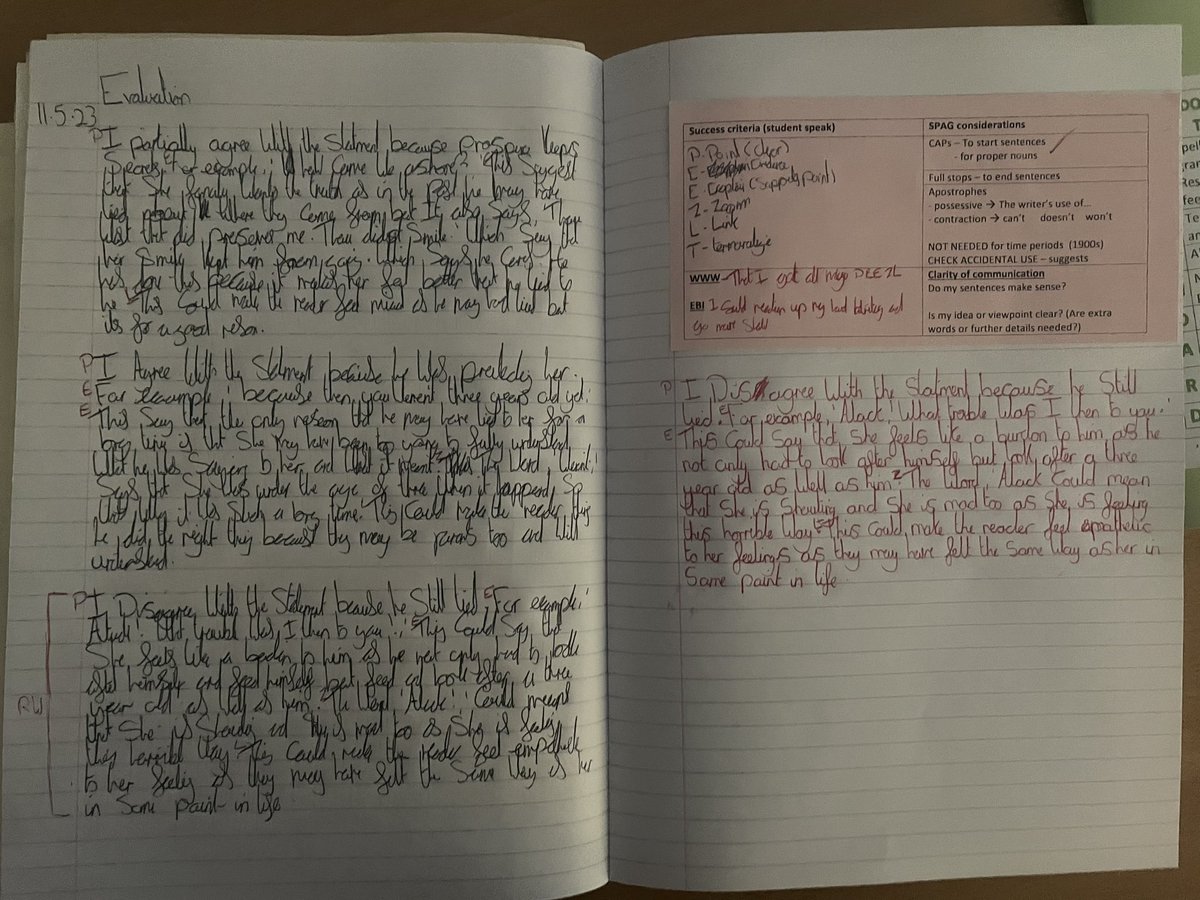 Evaluation
11.5.23
P I partially agree with the statment because prospero keeps
Secrets. E For example, 'How came we ashore?' This Suggest
that She wants the truth as in the Past he may have
lied about Where they Come from but It also Says, 'Thou
wast that did preserve me. Thou didst Smile.' Which Say that
her Smile kept him
has done this because it makes her feel better that he lied to
he This Could make the reader feel as he may had lied but
its for a good reson.
P I Agree With the Statment because he Was her.
E For example, 'because then you werent three years old yet.'
E This Say that the only reson that he may have lied to her for a
long time is that She may have been to young to fully understand
What he Was Saying to her and What it meant. Z The Word, 'Werent'
Says that She Was under the age of three when it happend So
that why it Was Such a long time. This Could make the reader think
he did the right thing because they may be parents too and Will
understand.
P I Disagree With the Statment because he Still lied. E For example,
'Alack! What trouble Was I then to you!' E This Could Say that
She feels like a to him as he not only had to look
after himself and feed himself but feed and look after a three
year old as well as him. Z The Word, 'Alack!' Could means
that She is Shouting and She is mad too as She is feeling
this terrible Way. This Could make the reader feel
to her feelings as they may have felt the Same Way as her
in Some paint in life
RW
Success criteria (student speak)
P - Point (clear)
E - Evidence
E - Explain (Support point)
Z - Zoom
L - Link
T -
WWW - That I got all my PEEZL
EBI I Could my hand and
go more
SPAG considerations
CAPs – To start sentences
- for proper nouns
Full stops – to end sentences
Apostrophes
- possessive → The writer's use of...
- contraction → can't doesn't won't
NOT NEEDED for time periods (1900s)
CHECK ACCIDENTAL USE – suggests
Clarity of communication
Do my sentences make sense?
Is my idea or viewpoint clear? (Are extra
words or further details needed?)
P I Disagree With the Statment because he Still
lied. E For example, 'Alack! What trouble Was I then to you.'
E This Could Say that She feels like a burdon to him as he
not only had to look after himself but look after a three
year old as Well as him. Z The Word, Alack Could mean
that She is Shouting and She is mad too as She is feeling
this horrible Way. This Could make the reader feel empathetic
to her feelings as they may have felt the Same Way as her in
Some paint in life.